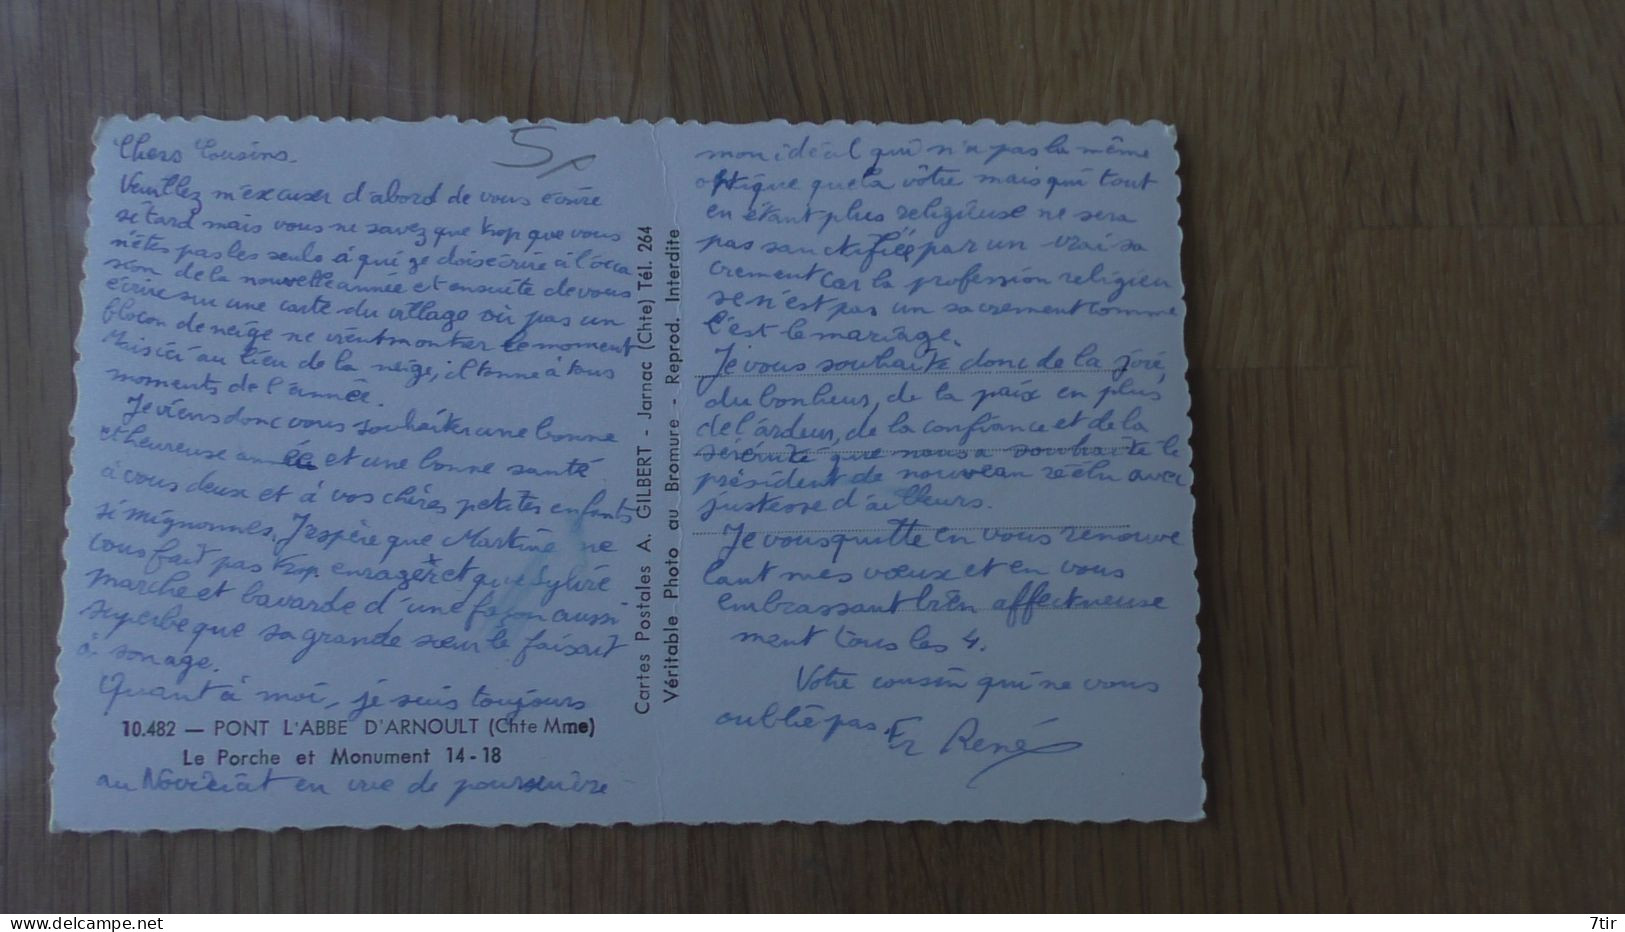 Chers Cousins.
5x
Veuillez m'excuser d'abord de vous écrire
si tard mais vous ne savez que trop que vous
n'êtes pas les seuls à qui je dois écrire à l'occa
sion de la nouvelle année et ensuite de vous
écrire sur une carte du village où pas un
flocon de neige ne vient montrer le moment
Mais ici au lieu de la neige, il tonne à tous
moments de l'année.
Je viens donc vous souhaiter une bonne
et heureuse année et une bonne santé
à vous deux et à vos chères petites enfants
si mignonnes. J'espère que Martine ne
vous fait pas trop enrager et que Sylvie
marche et bavarde d'une façon aussi
superbe que sa grande sœur le faisait
à son age.
Quant à moi, je suis toujours
10.482 — PONT L'ABBE D'ARNOULT (Chte Mme)
Le Porche et Monument 14-18
au Noviciat en vue de poursuivre
Cartes Postales A. GILBERT - Jarnac (Chte) Tél. 264
Véritable Photo au Bromure - Reprod. Interdite
mon idéal qui n'a pas la même
optique que la vôtre mais qui tout
en étant plus religieuse ne sera
pas sanctifiée par un vrai sa
crement car la profession religieu
se n'est pas un sacrement comme
l'est le mariage.
Je vous souhaite donc de la joie,
du bonheur, de la paix en plus
de l'ardeur, de la confiance et de la
sérénité que nous a souhaité le
président de nouveau réélu avec
justesse d'ailleurs.
Je vous quitte en vous renouve
lant mes vœux et en vous
embrassant bien affectueuse
ment tous les 4.
Votre cousin qui ne vous
oublie pas. Fr René
7tir